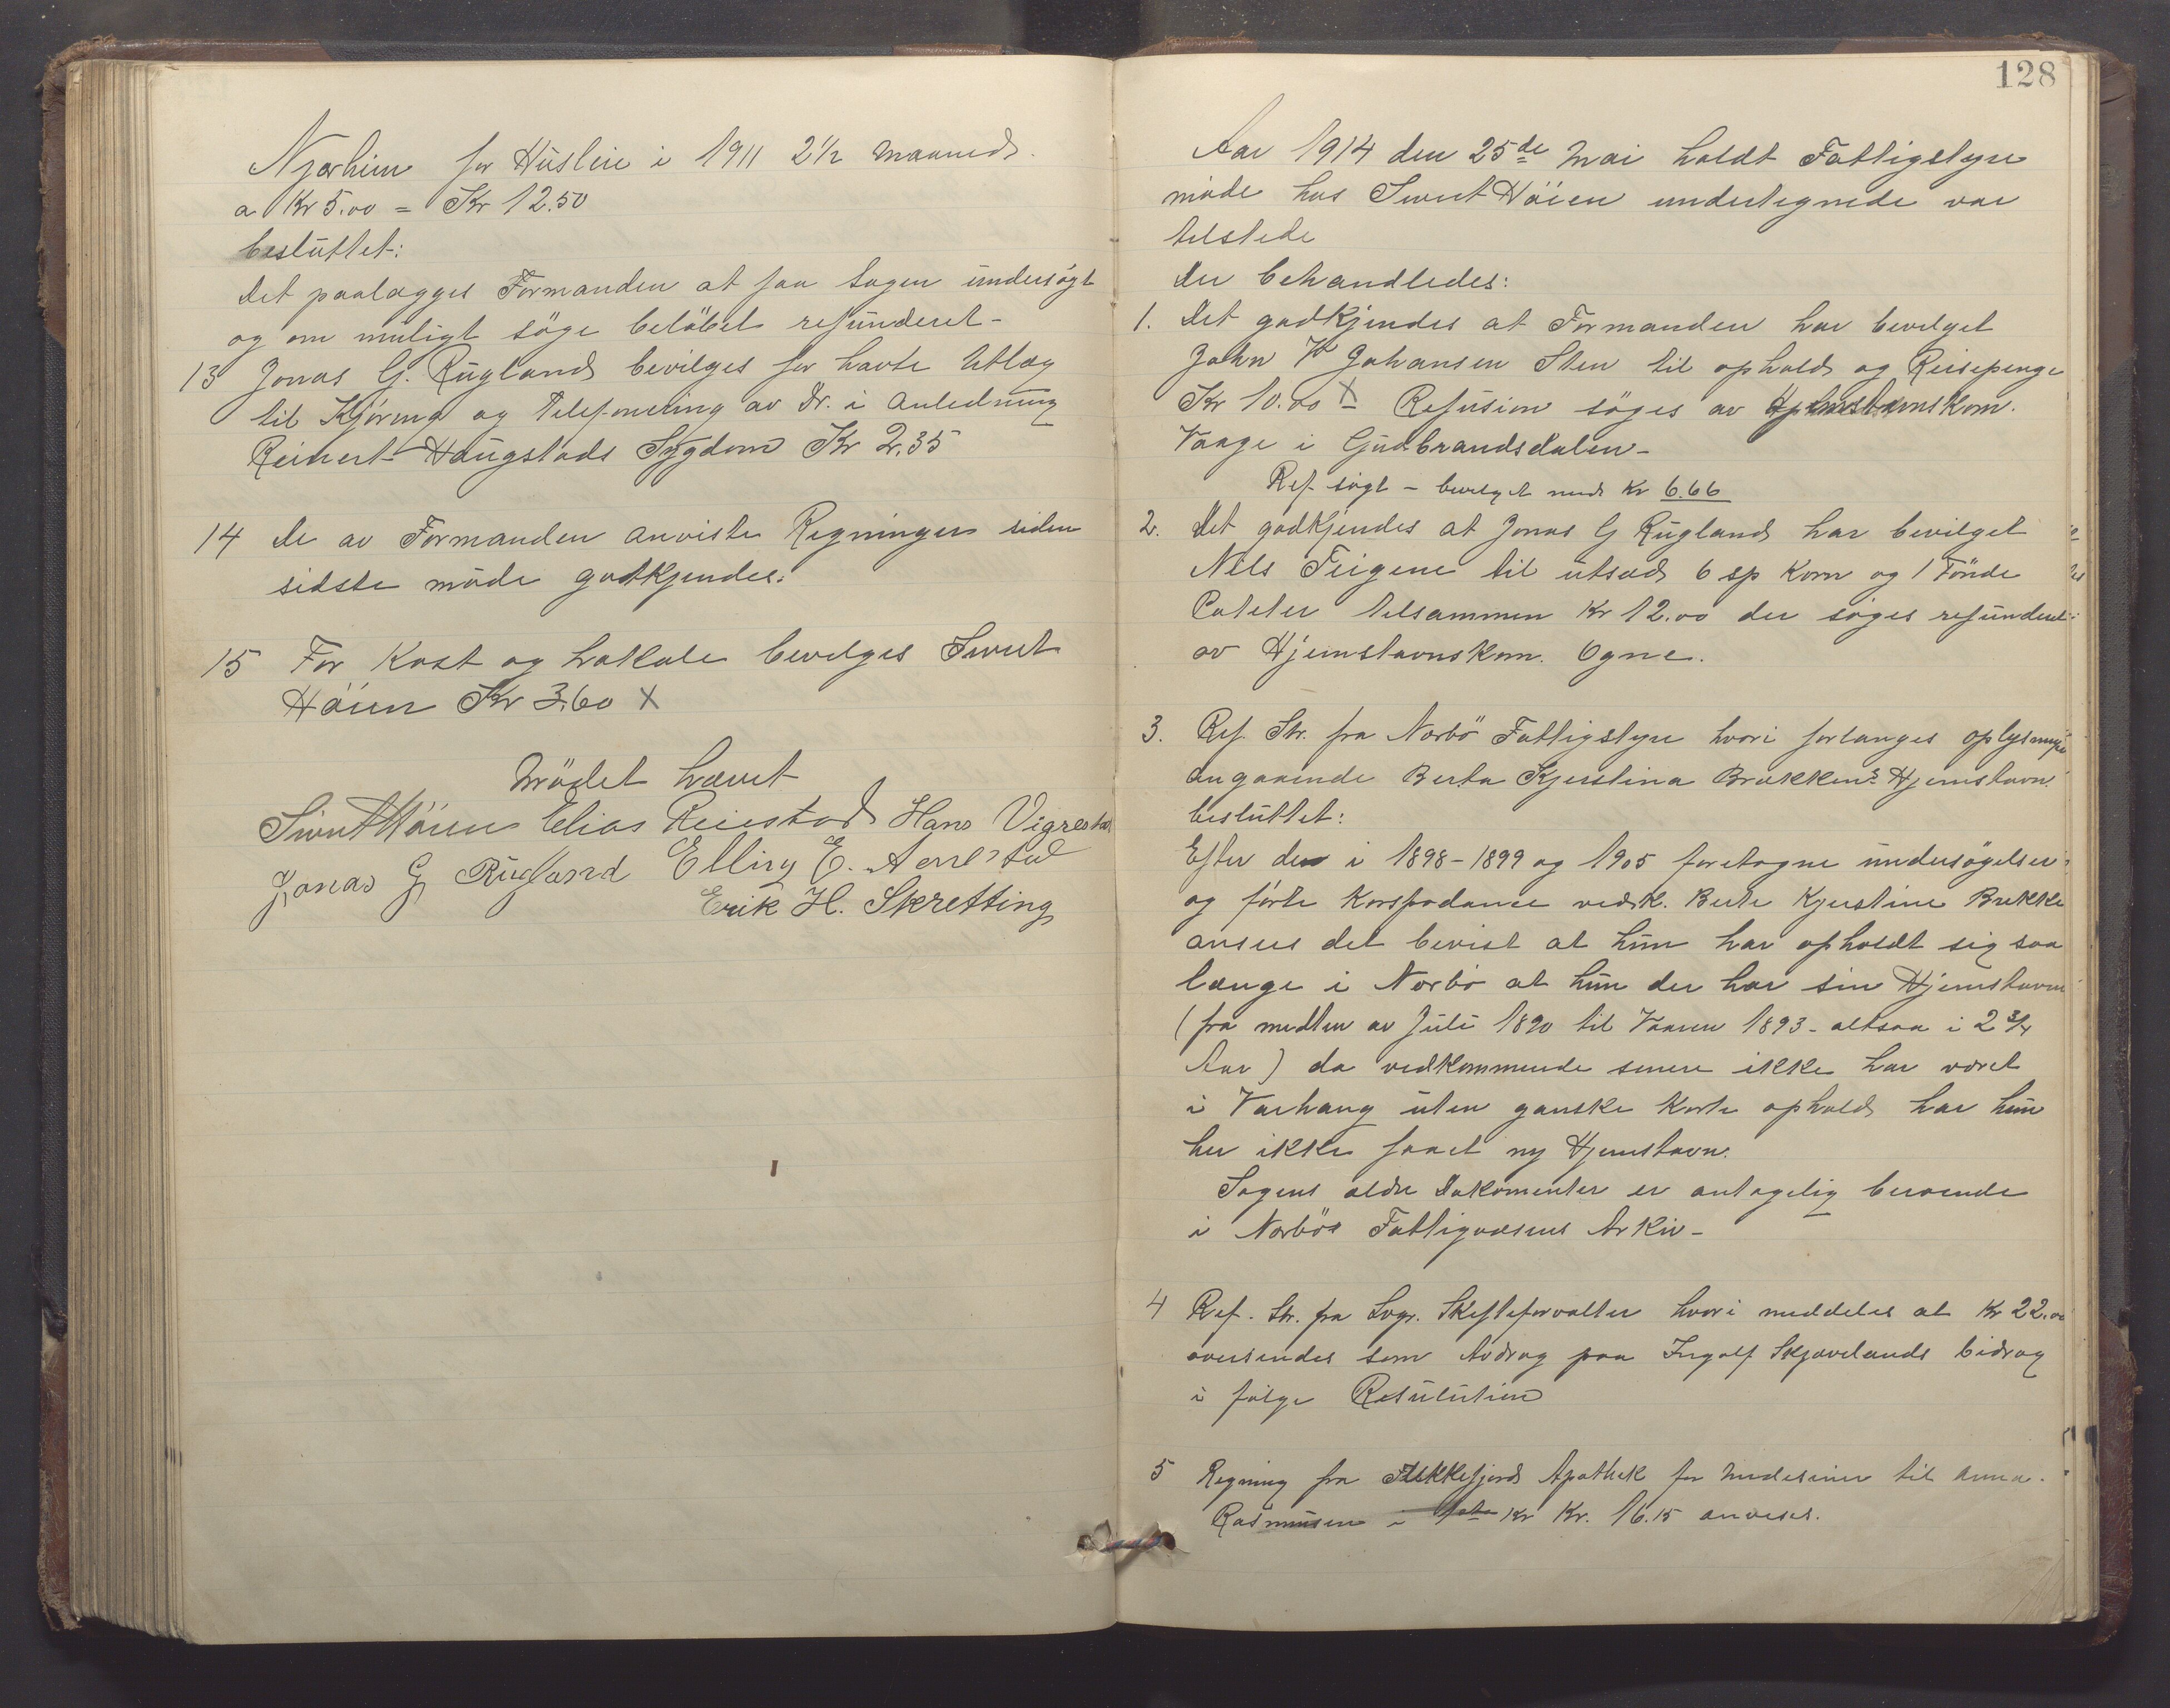 Njærheim for Husleie i 1911 2½ Maaneds
a Kr 5.00 = Kr 12.50
besluttet:
Det paalægges Formanden at faa Sagen undersögt
og om muligt söge belöbet refunderet -
13 Jonas G. Rugland bevilges for havte Utlæg
til Kjöring og Telefonering av Dr. i Anledning
Reinert Haugstads Sygdom Kr 2,35
14 De av Formanden anviste Regninger siden
sidste möde godkjendes.
15 For Kost og Lokale bevilges Sivert
Höien Kr 3,60 X
Mödet hævet
Sivert Höien Elias Reiestad Hans Vigrestad
Jonas G Rugland Elling E. Aarrestad
Erik H. Skretting
128
Aar 1914 den 25de Mai holdt Fattigstyre
möde hos Sivert Höien undertegnede var
tilstede
Der behandledes:
1. Det godkjendes at Formanden har bevilget
John K Johansen Sten til ophold og Reisepenge
Kr 10.00 X - Refusion söges av Hjemstavnskom.
Vaage i Gudbrandsdalen -
Ref. sögt - bevilget med Kr 6.66
2. Det godkjendes at Jonas G Rugland har bevilget
Nils Feigene til utsæd 6 sp Korn og 1 Tönde
Poteter tilsammen Kr 12.00 der söges refunderet
av Hjemstavnskom. Ogne.
3. Ref. Skr. fra Nærbö Fattigstyre hvori forlanges oplysninger
angaaende Berta Kjerstina Brækkens Hjemstavn.
besluttet:
Efter de i 1898-1899 og 1905 foretagne undersögelser
og förte Korspodance vedk. Berte Kjerstine Brekke
ansees det bevist at hun har opholdt sig saa
længe i Nærbö at hun der har sin Hjemstavn
(fra midten av Juli 1890 til Vaaren 1893 - altsaa i 2 3/4
Aar) da vedkommende senere ikke har været
i Varhaug uten ganske korte ophold har hun
her ikke faaet ny Hjemstavn.
Sagens ældre Dokomenter er antagelig beroende
i Nærbös Fattigvæsens Arkiv -
4 Ref. Skr. fra Sogr. Skifteforvalter hvori meddeles at Kr 22.00
oversendes som Avdrag paa Ingolf Skjævelands bidrag
i følge Resulution
5 Regning fra Flekkefjords Apothek for Medesiner til Anna
Rasmusen i Kr Kr. 16.15 anvises.